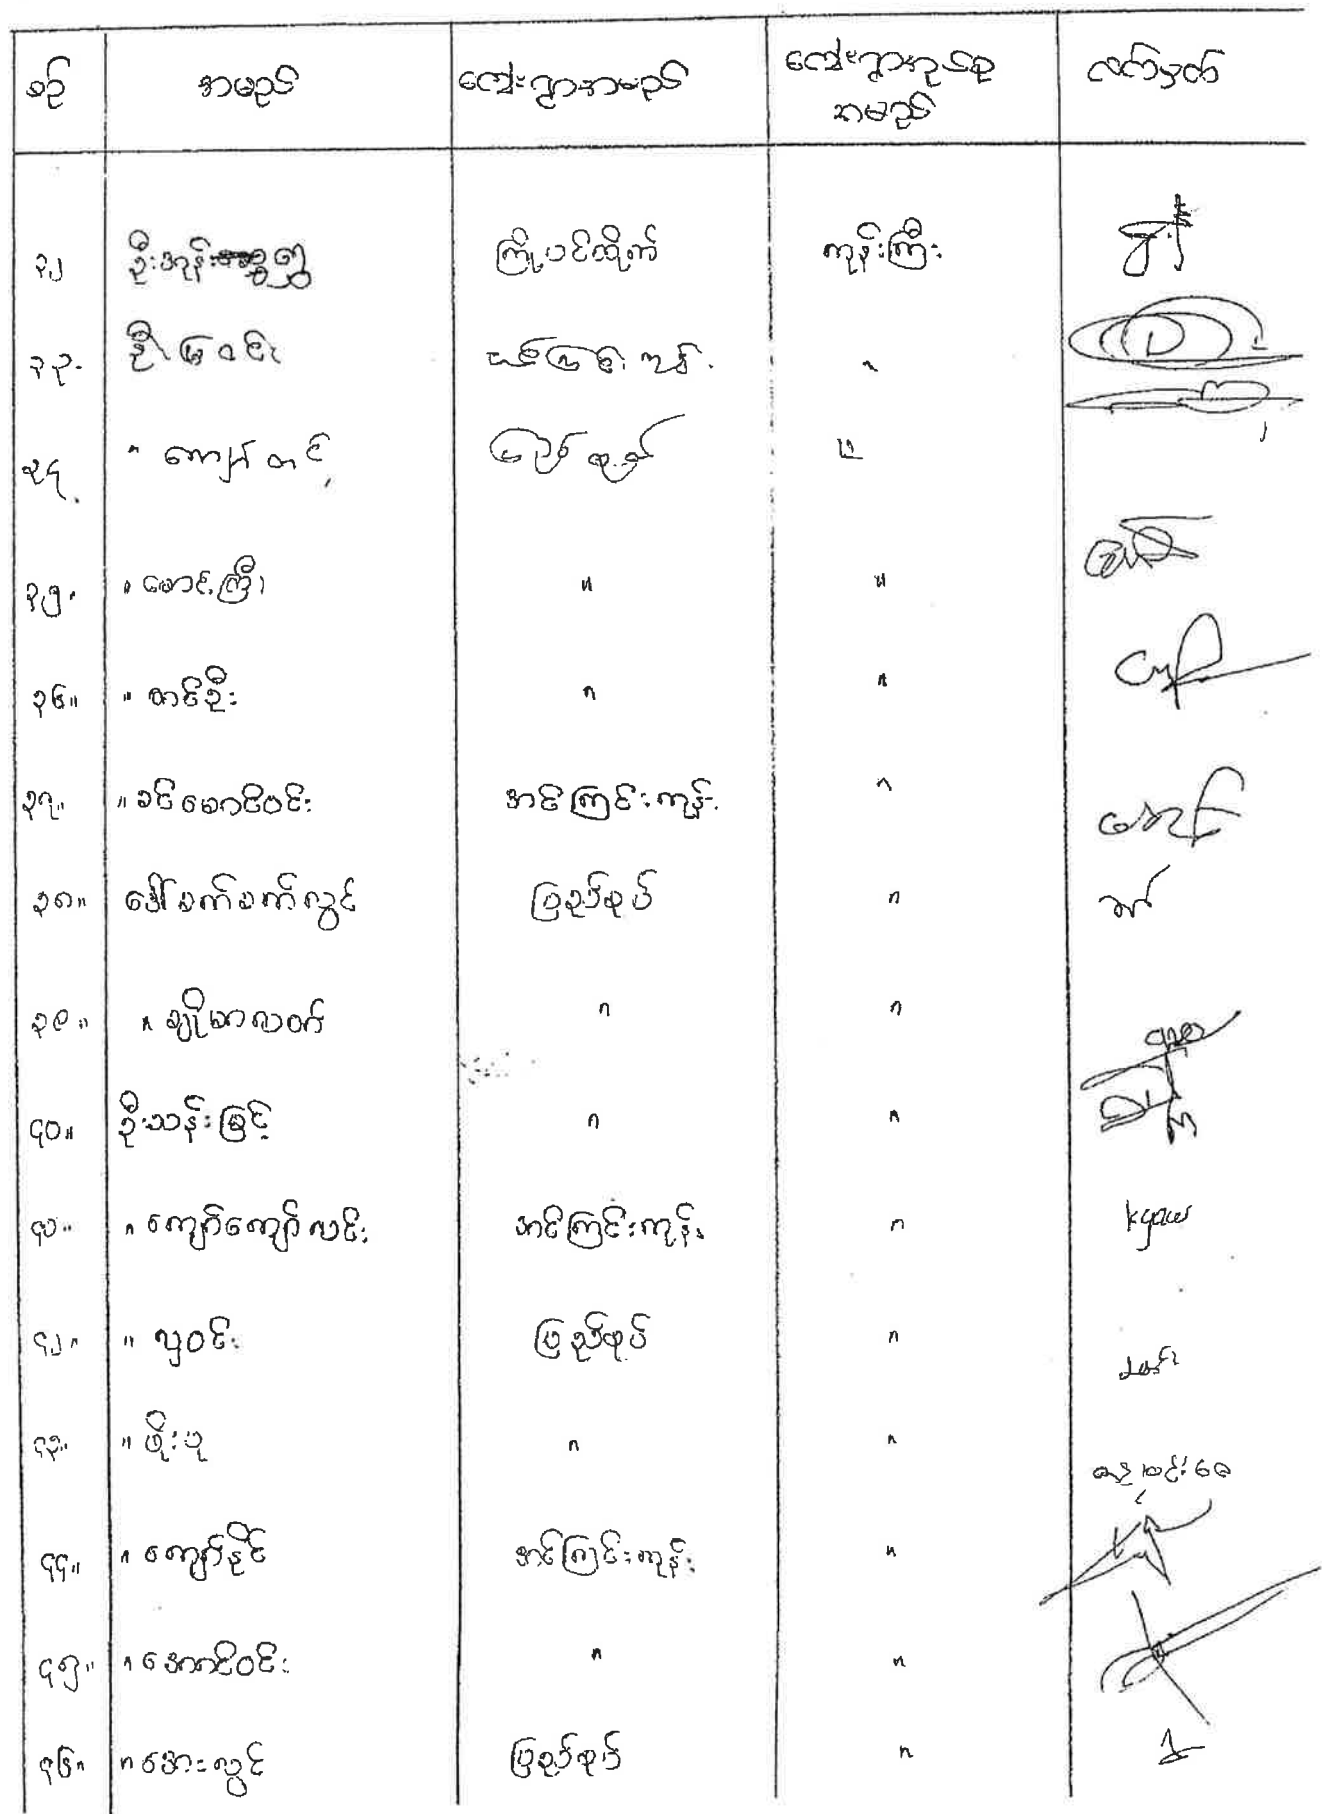 စဉ် အမည် ကျေးရွာအမည် ကျေးရွာအုပ်စု လက်မှတ်
အမည်
၃၂ ဦးအုန်းရွှေ ကြို့ပင်ထိုက် ကုန်းကြီး
၃၃. ဦးမြဝင်း "
၃၄. " ကျော်တင့် ပြည်ထုပ် "
၃၅။ " မောင်ကြီး " "
၃၆။ " တင်ဦး " "
၃၇။ " ခင်မောင်ဝင်း အင်ကြင်းကုန်း "
၃၈။ ဒေါ်ခက်ခက်လွင် ပြည်ထုပ် "
၃၉။ " ချိုမာလတ် " "
၄၀။ ဦးသန်းမြင့် " "
၄၁။ " ကျော်ကျော်လင်း အင်ကြင်းကုန်း " kyaw
၄၂။ " လှဝင်း ပြည်ထုပ် "
၄၃။ " ဖိုးပု " "
၄၄။ " ကျော်နိုင် အင်ကြင်းကုန်း "
၄၅။ " အောင်ဝင်း " "
၄၆။ " အေးလွင် ပြည်ထုပ် "